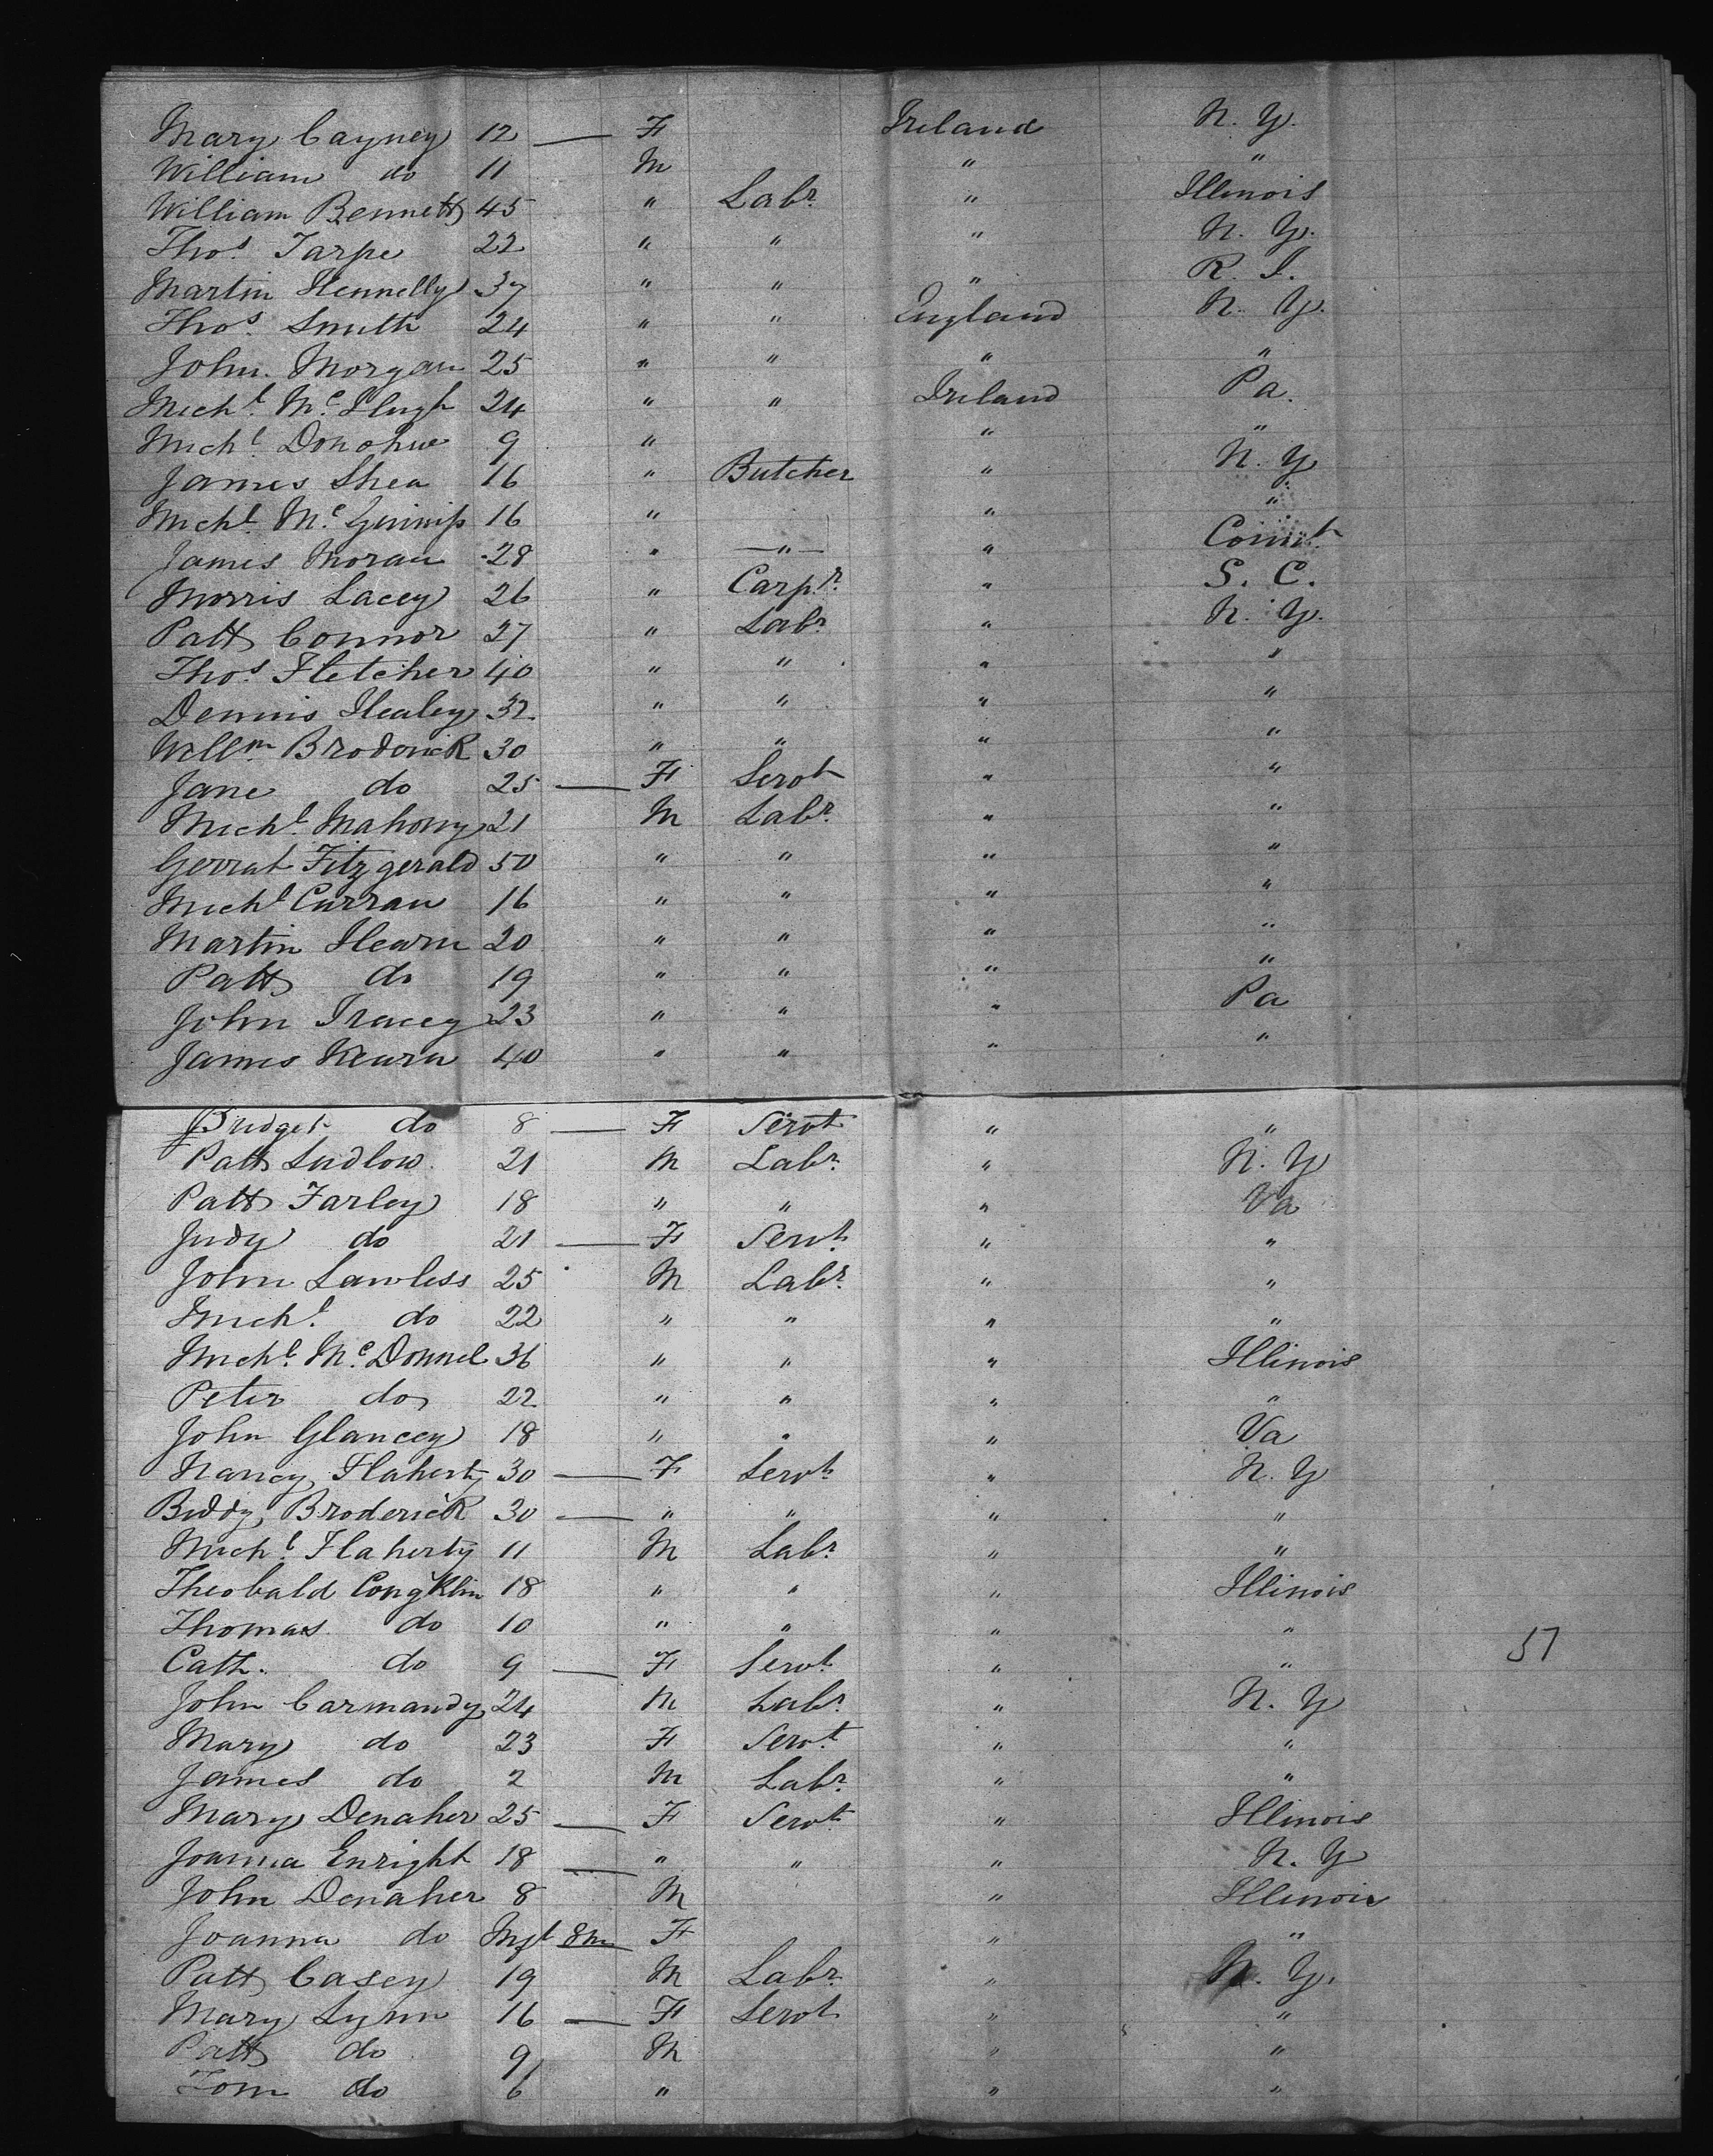 Mary Cayney 12 — F Ireland N. Y.
William do 11 M " "
William Bennett 45 " Labr. " Illinois
Thos. Tarpe 22 " " " N. Y.
Martin Hennelly 37 " " " R. I.
Thos. Smith 24 " " England N. Y.
John Morgan 25 " " " "
Michl. McHugh 24 " " Ireland Pa.
Michl. Donohue 9 " " "
James Shea 16 " Butcher " N. Y
Michl. McGinniss 16 " " "
James Moran 28 " —"— " Connt.
Morris Lacey 26 " Carpr. " S. C.
Patt Connor 27 " Labr. " N. Y.
Thos. Fletcher 40 " " " "
Dennis Healey 32 " " " "
Willm. Broderick 30 " " " "
Jane do 25 — F Servt " "
Michl. Mahony 21 M Labr. " "
Gerrat Fitzgerald 50 " " " "
Michl Curran 16 " " " "
Martin Hearn 20 " " " "
Patt do 19 " " " "
John Tracey 23 " " " Pa
James Kearn 40 " " " "
Bridget do 8 — F Servt " "
Patt Ludlow 21 M Labr. " N. Y
Patt Farley 18 " " " Va
Judy do 21 — F Servt. " "
John Lawless 25 M Labr. " "
Michl. do 22 " " " "
Michl. McDonnel 36 " " " Illinois
Peter do 22 " " " "
John Glancey 18 " " " Va
Nancy Flaherty 30 — F Servt. " N. Y
Biddy Broderick 30 — " " " "
Michl. Flaherty 11 M Labr. " "
Theobald Congklin 18 " " " Illinois
Thomas do 10 " " " "
Cath. do 9 — F Servt. " " 57
John Carmandy 24 M Labr. " N. Y
Mary do 23 F Servt. " "
James do 2 M Labr. " "
Mary Denaher 25 — F Servt. " Illinois
Joanna Enright 18 — " " " N. Y
John Denaher 8 M " Illinois
Joanna do Inft 8m F " "
Patt Casey 19 M Labr. " N. Y.
Mary Lynn 16 — F Servt " "
Patt do 9 M " "
Tom do 6 " " "